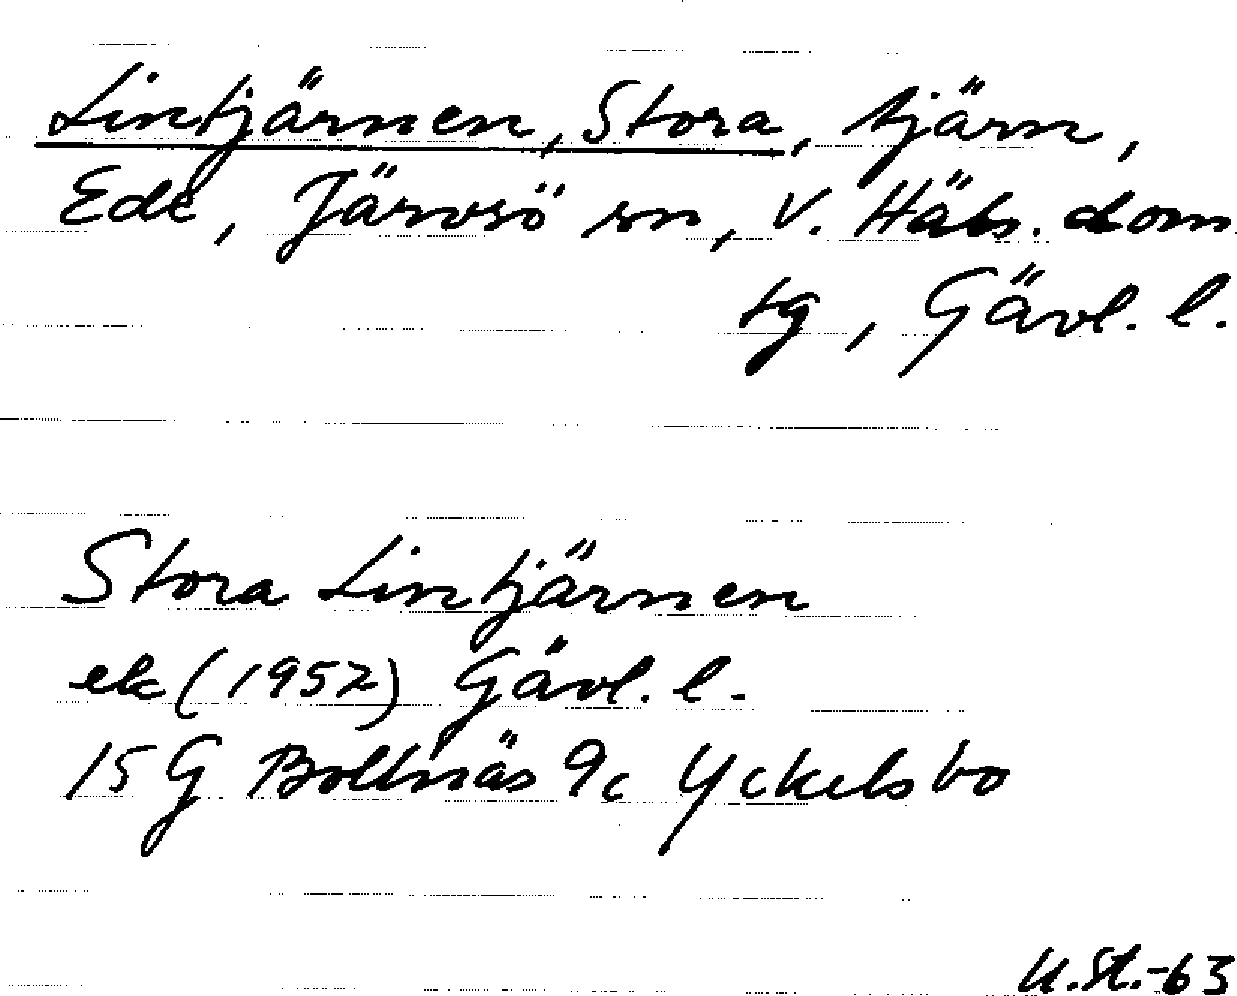 Lintjärnen, Stora, tjärn,
Ede, Järvsö sn, V. Häls. dom
tg, Gävl. l.
Stora Lintjärnen
ek (1952) Gävl. l.
15 G Bollnäs 9c Yckelsbo
U.St.-63